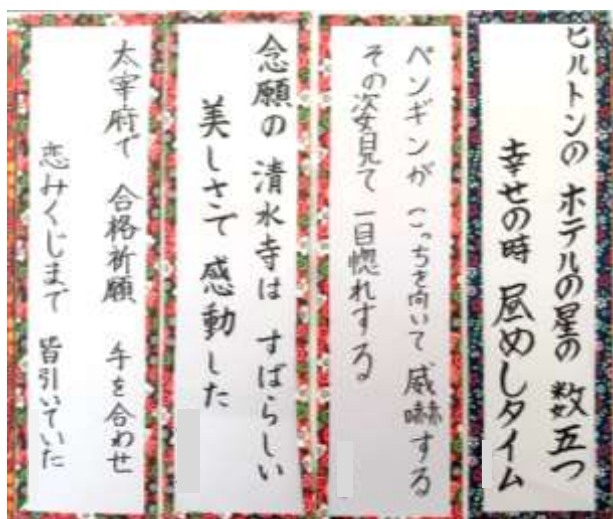 ヒルトンの ホテルの星の 数五つ
幸せの時 昼めしタイム
ペンギンが こっちを向いて 威嚇する
その姿見て 一目惚れする
念願の 清水寺は すばらしい
美しさで 感動した
太宰府で 合格祈願 手を合わせ
恋みくじまで 皆引いていた